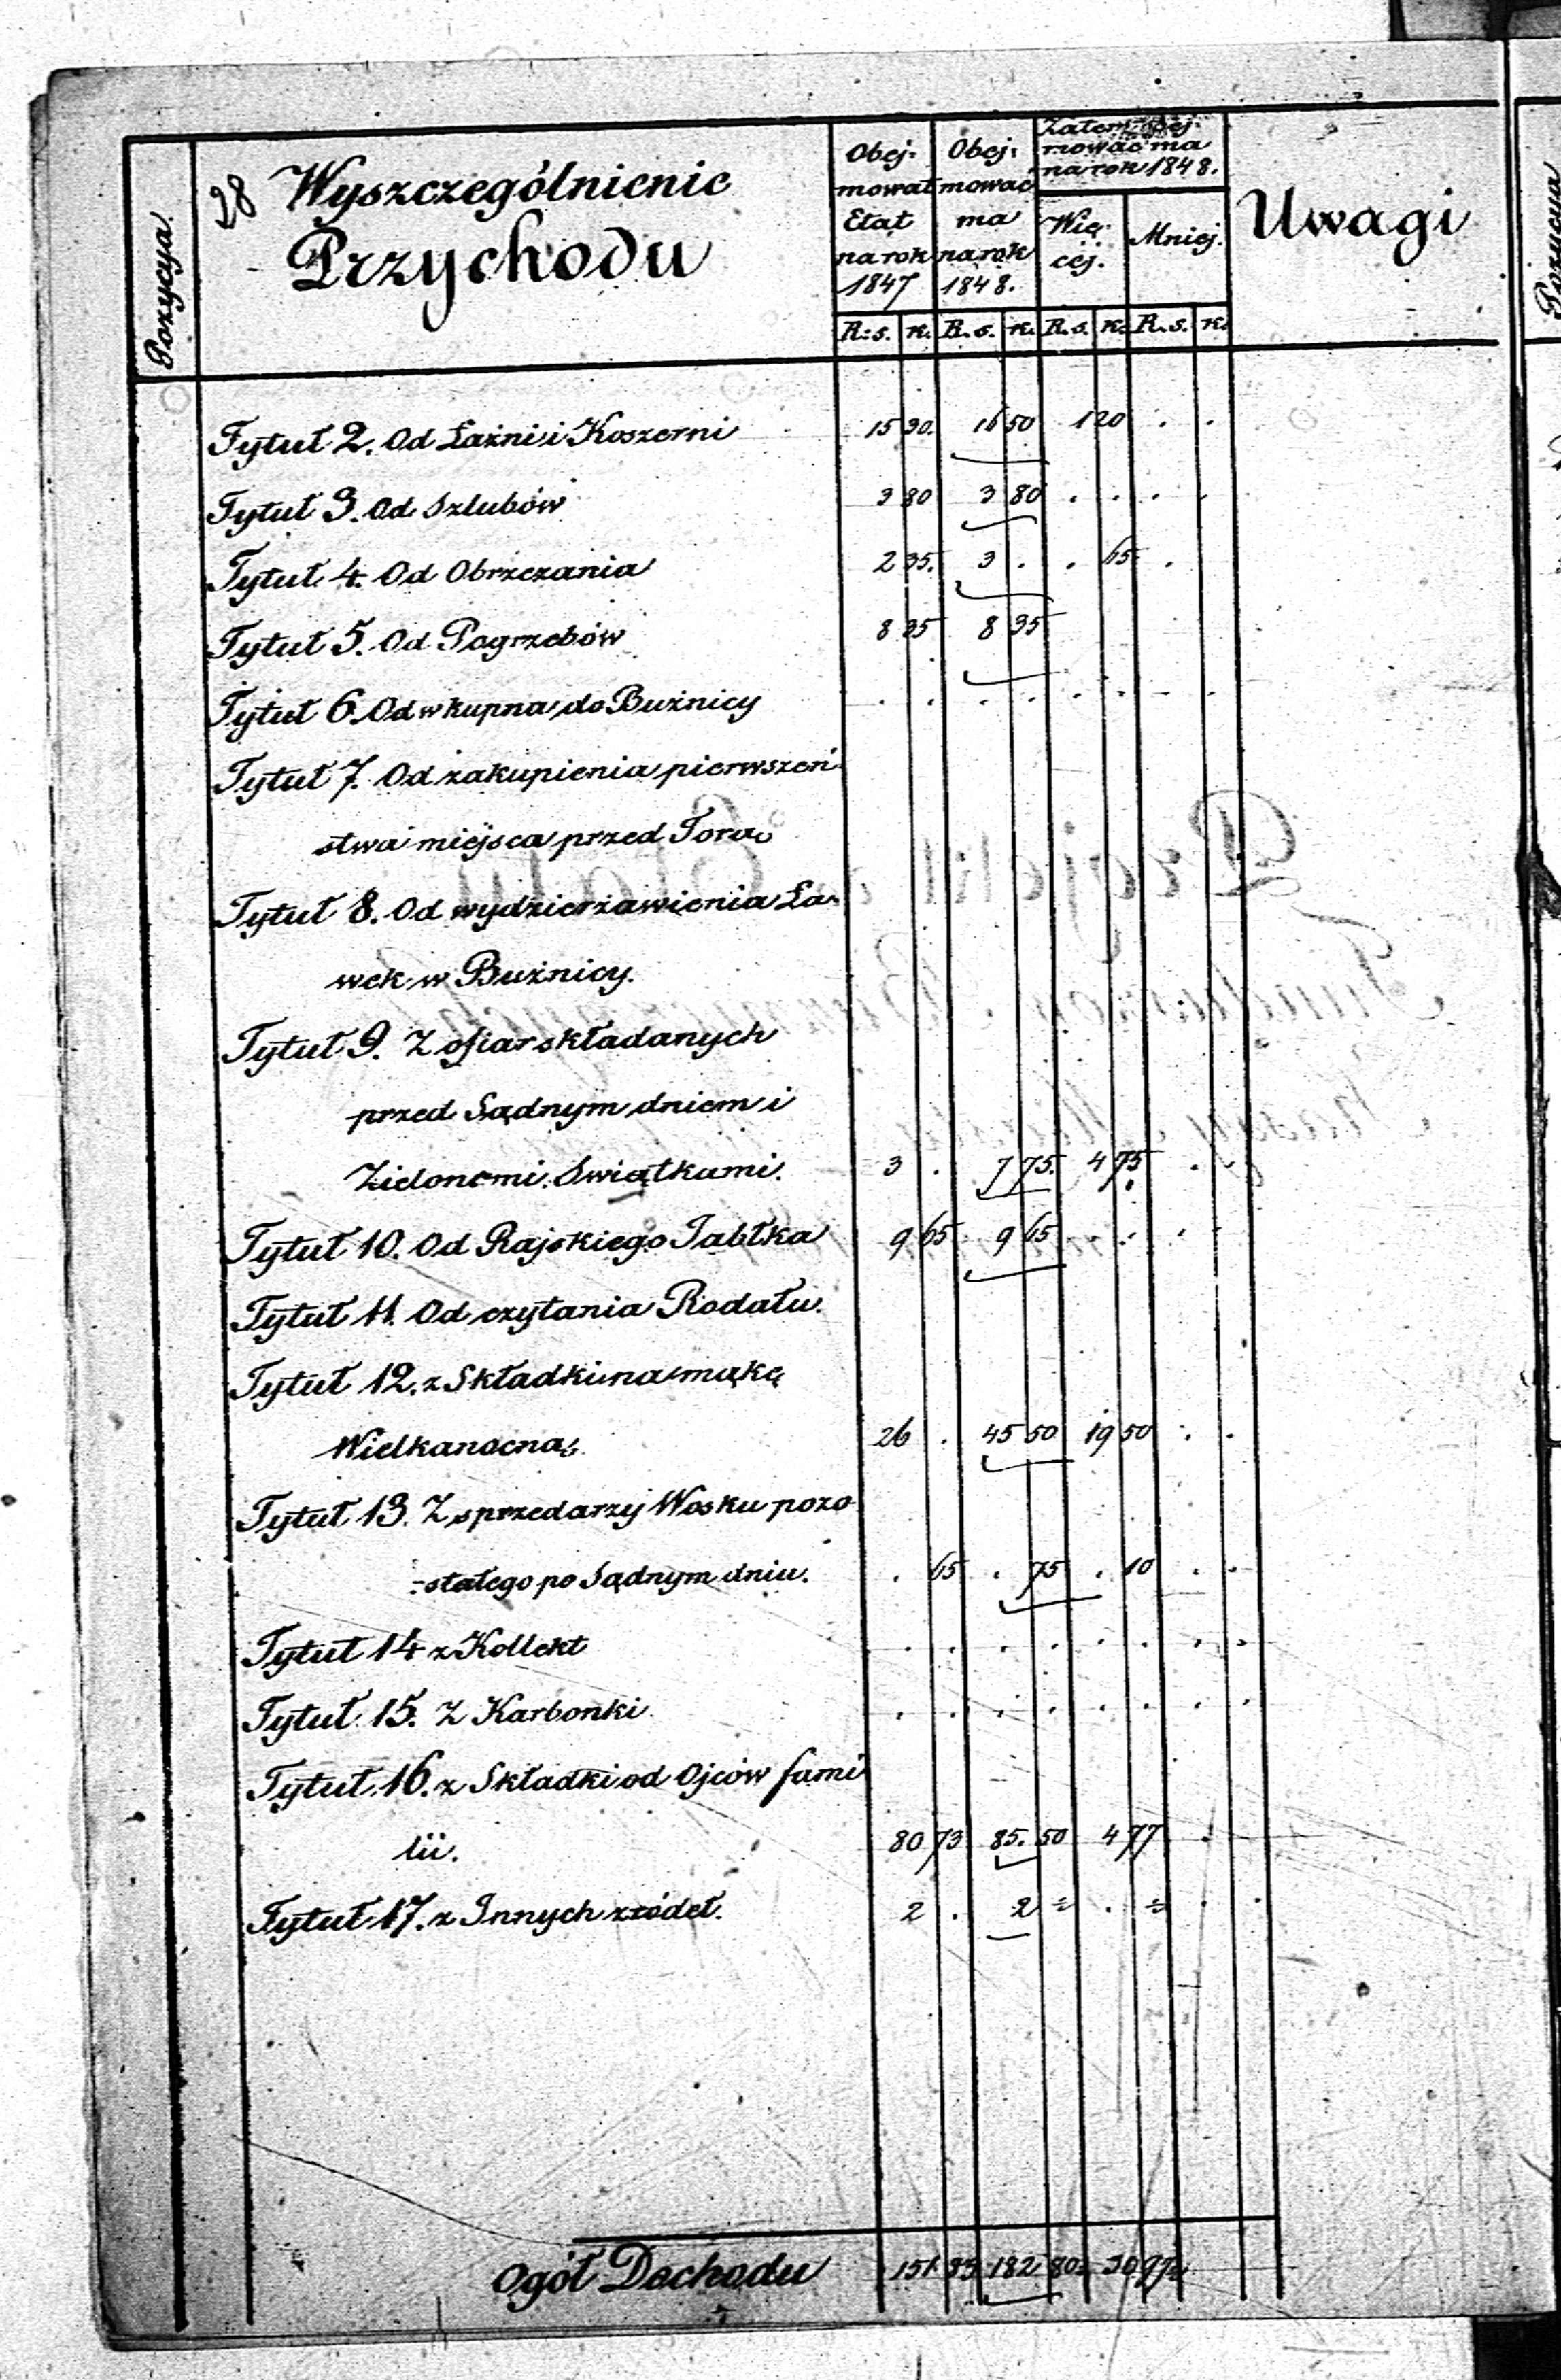 28 Wyszczególnienie
Przychodu
Pozycya
Obej-
mował
Etat
na rok
1847
Obej-
mować
ma
na rok
1848.
Zatem obej-
mować ma
na rok 1848.
Wię-
cej.
Mniej.
Uwagi
R. s. k. R. s. k. R. s. k. R. s. k.
Tytuł 2. Od Łaźni i Koszerni 15 30. 16 50 1 20 . .
Tytuł 3. Od Szlubów 3 80 3 80 . . . .
Tytuł 4. Od Obrzezania 2 35. 3 . . 65 .
Tytuł 5. Od Pogrzebów 8 35 8 35
Tytuł 6. Od wkupna do Bużnicy . . . . . . . .
Tytuł 7. Od zakupienia pierwszeń-
stwa miejsca przed Torą
Tytuł 8. Od wydzierżawienia Ła-
wek w Bużnicy.
Tytuł 9. Z ofiar składanych
przed Sądnym dniem i
Zielonemi Swiątkami. 3 . 7 75. 4 75 . .
Tytuł 10. Od Rajskiego Jabłka 9 65 9 65 . . . .
Tytuł 11. Od czytania Rodału.
Tytuł 12. z Składki na mąkę
Wielkanocną 26 . 45 50 19 50 . .
Tytuł 13. Z sprzedarzy Wosku pozo-
-stałego po Sądnym dniu. . 65 . 75 . 10 . .
Tytuł 14 z Kollekt . . . . . . . .
Tytuł 15. Z Karbonki . . . . . . . .
Tytuł 16. z Składki od Ojców fami
lii. 80 73 85. 50 4 77 .
Tytuł 17. z Innych zródeł. 2 . 2 = . = . .
Ogół Dochodu 151 83 182 80 30 97
Pozycya